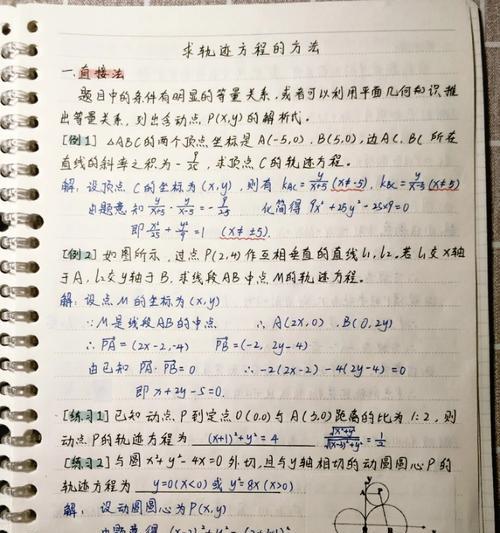 求轨迹方程的方法
一.直接法
题目中的条件有明显的等量关系,或者可以利用平面几何知识推
出等量关系,列出含动点P(x,y)的解析式。
[例1] △ABC的两个顶点坐标是A(-5,0), B(5,0), 边AC, BC 所在
直线的斜率之积为-9/25, 求顶点C的轨迹方程。
解: 设顶点C的坐标为(x,y), 则有 kAC=y/(x+5) (x≠-5), kBC=y/(x-5) (x≠5)
由题意知 y/(x+5)·y/(x-5)=-9/25 化简得 9x²+25y²-25×9=0
即 x²/25+y²/9=1 (x≠±5).
[例2] 如图所示, 过点P(2,4)作互相垂直的直线l₁,l₂.若l₁交x轴
于A, l₂交y轴于B, 求线段AB中点M的轨迹方程。
解: 设点M的坐标为(x,y)
∵M是线段AB的中点 ∴A(2x,0), B(0,2y)
∴PA=(2x-2,-4) PB=(-2, 2y-4)
由已知 PA·PB=0 ∴-2(2x-2)-4(2y-4)=0
即 x+2y-5=0.
[练习1] 已知动点P到定点O(0,0)与A(3,0)距离的比为1:2, 则
动点P的轨迹方程为 (x+1)²+y²=4 √(x²+y²)/√((x-3)²+y²)=1/2
[练习2] 与圆x²+y²-4x=0外切,且与y轴相切的动圆圆心P的
轨迹方程为 y=0(x<0) 或 y²=8x(x>0)
解: 设动圆圆心为P(x,y)